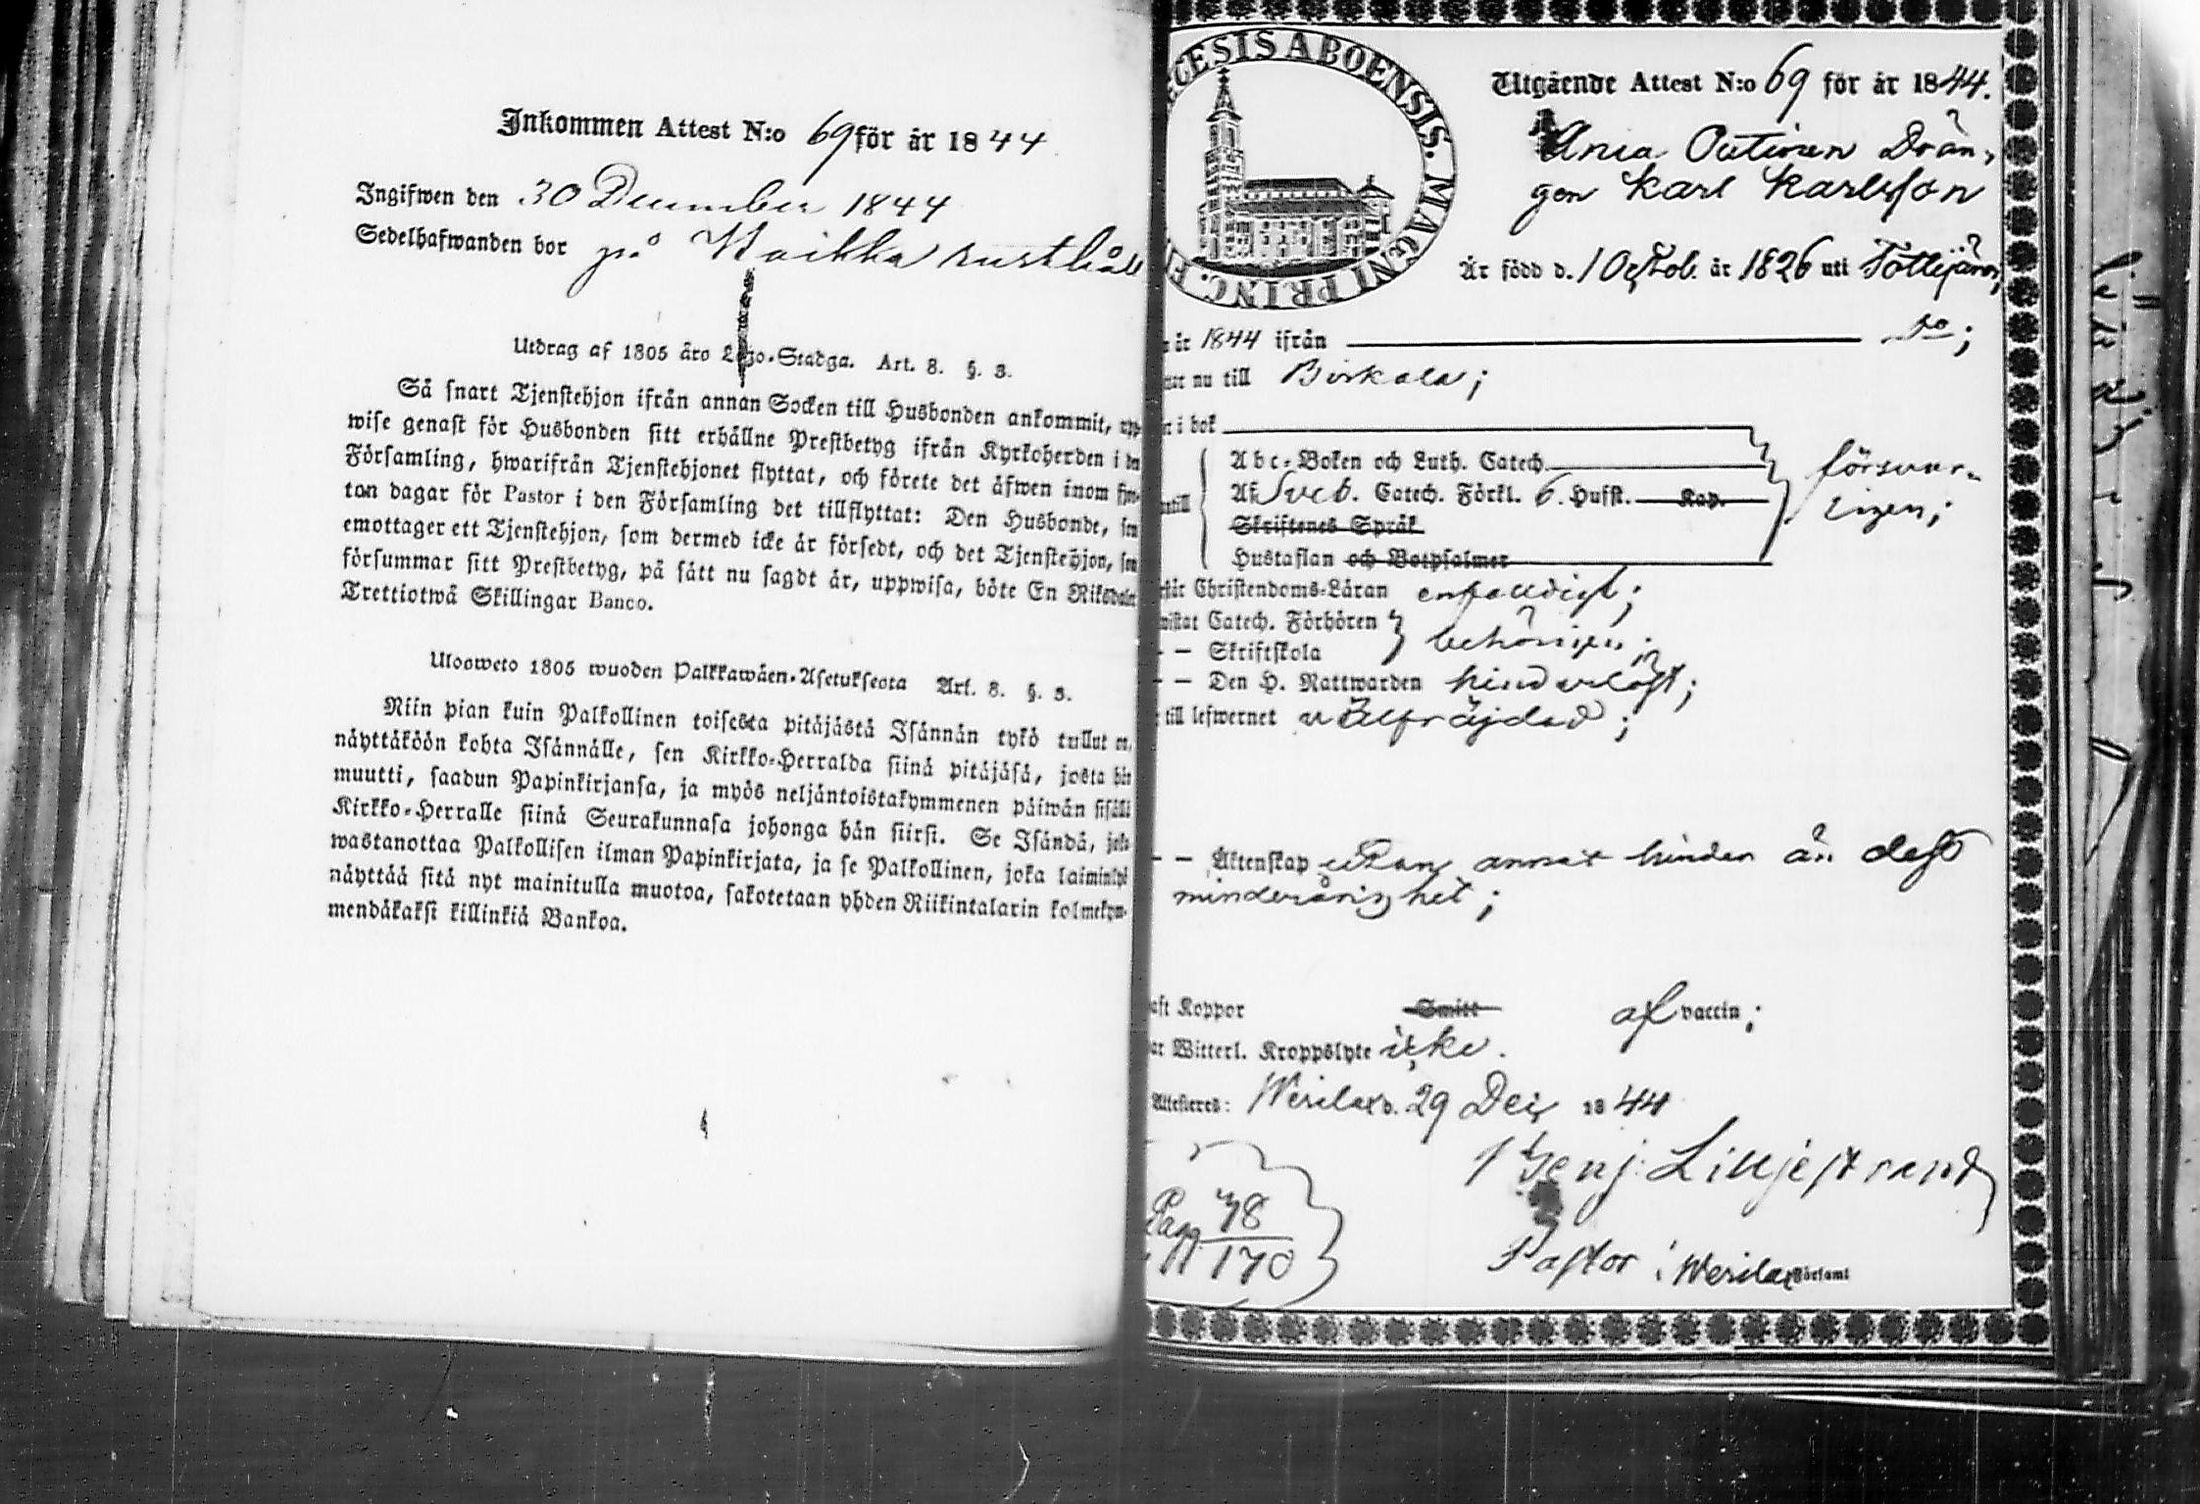 Inkommen Attest N:o 69 för år 1844
Ingifwen den 30 December 1844
Sedelhafwanden bor på Kaikka rusthåll
Utdrag af 1805 års Lego-Stadga. Art. 8. §. 3.
Så snart Tjenstehjon ifrån annan Socken till Husbonden ankommit, upp-
wise genast för Husbonden sitt erhållne Prestbetyg ifrån Kyrkoherden i den
Församling, hwarifrån Tjenstehjonet flyttat, och förete det äfwen inom fjor-
ton dagar för Pastor i den Församling det tillflyttat: Den Husbonde, som
emottager ett Tjenstehjon, som dermed icke är försedt, och det Tjenstehjon, som
försummar sitt Prestbetyg, på sätt nu sagdt är, uppwisa, böte En Riksdaler
Trettiotwå Skillingar Banco.
Ulosweto 1805 wuoden Palkkawäen-Asetuksesta Art. 8. §. 3.
Niin pian kuin Palkollinen toisesta pitäjästä Isännän tykö tullut on,
näyttäköön kohta Isännälle, sen Kirkko-Herralda siinä pitäjäsä, josta hän
muutti, saadun Papinkirjansa, ja myös neljäntoistakymmenen päiwän sisällä
Kirkko-Herralle siinä Seurakunnasa johonga hän siirsi. Se Isändä, joka
wastanottaa Palkollisen ilman Papinkirjata, ja se Palkollinen, joka laiminlyö
näyttää sitä nyt mainitulla muotoa, sakotetaan yhden Riikintalarin kolmekym-
mendäkaksi killinkiä Bankoa.
ECESIS ABOENSIS. MAGNI PRINC. F
Utgående Attest N:o 69 för år 1844.
Ania Outinen Drän-
gen Karl Karlsson
Är född d. 1 Octob. år 1826 uti Tottijärvi,
år 1844 ifrån do;
nu till Birkala;
i bok
Abc-Boken och Luth. Catech.
Af Sveb. Catech. Förkl. 6. Hufst. Kap. försvar-
Skriftenes Språk ligen;
Hustaflan och Botpsalmer
Christendoms-Läran enfaldigt;
Catech. Förhören
– – Skriftskola behörigen;
– – Den H. Nattwarden hinderlöst;
till lefwernet välfräjdad;
– – Äktenskap utan annat hinder än dess
minderårighet;
Koppor Smitt af vaccin;
Witterl. Kroppslyte icke.
Attesteres: Wesilax d. 29 Dec 1844
Benj: Lilljestrand
Pag 78
170
Pastor i Wesilax Församl